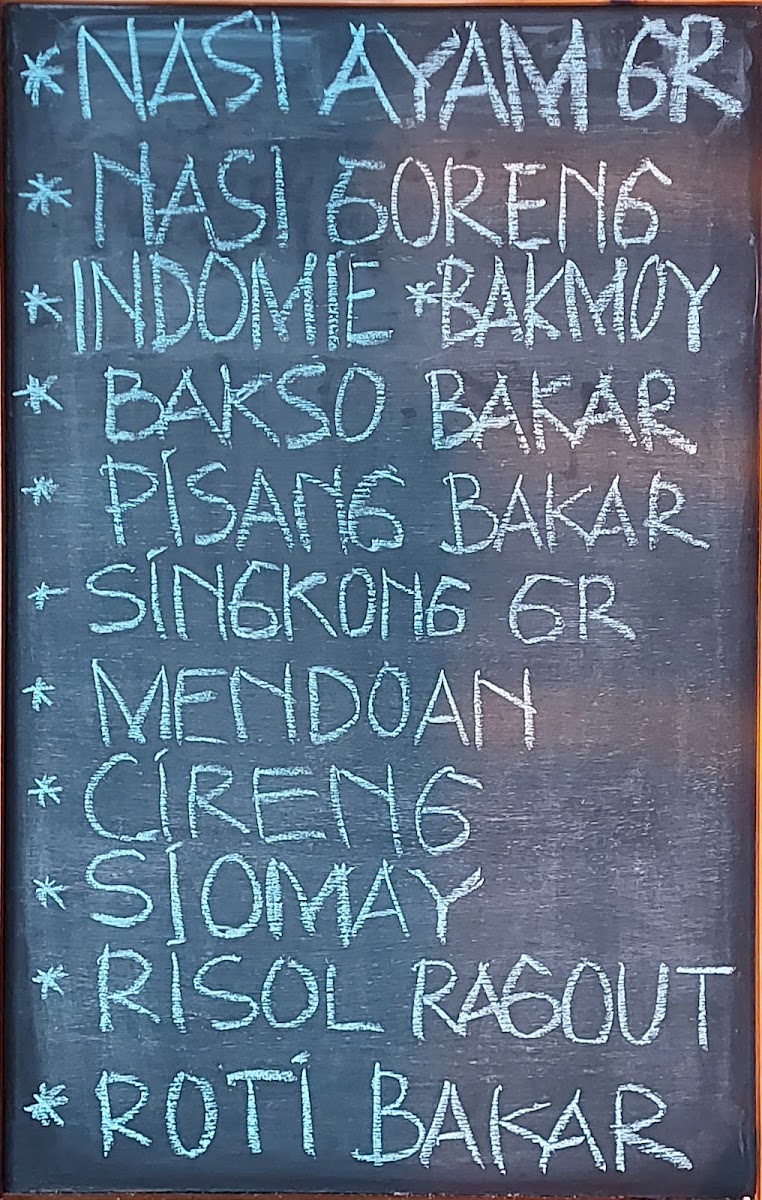 * NASI AYAM GR
* NASI GORENG
* INDOMIE * BAKMOY
* BAKSO BAKAR
* PISANG BAKAR
* SINGKONG GR
* MENDOAN
* CIRENG
* SIOMAY
* RISOL RAGOUT
* ROTI BAKAR